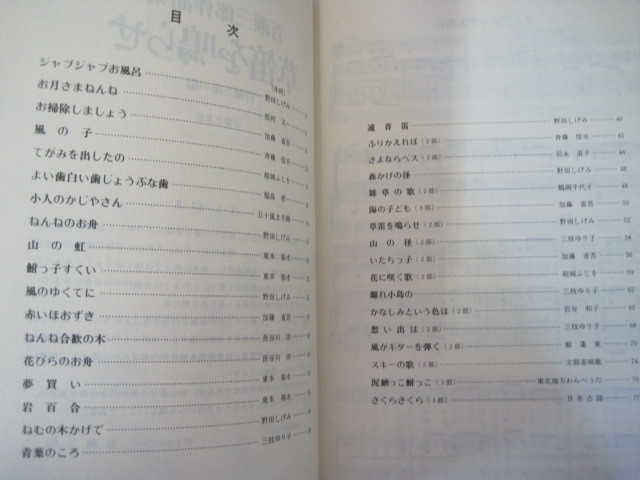 目次
ジャブジャブお風呂
お月さまねんね 野田しげみ
お掃除しましょう 松村 又一
風の子 加藤 省吾
てがみを出したの 斉藤 信夫
よい歯白い歯じょうぶな歯 結城ふじを
小人のかじやさん
ねんねのお舟 野田しげみ
山の虹 東本 春水
鮒っ子すくい 東本 春水
風のゆくてに 野田しげみ
赤いほおずき 加藤 省吾
ねんね合歓の木 長谷川
花びらのお舟 長谷川
夢買い 東本 春水
岩百合 東本 春水
ねむの木かげで 野田しげみ
青葉のころ 三枝ゆり子
遠音笛 野田しげみ 40
ふりかえれば（2部） 斉藤 信夫 42
さよならベス（2部） 44
森かげの径 野田しげみ 46
雑草の歌（2部） 鶴岡千代子 48
海の子ども（2部） 加藤 省吾 50
草笛を鳴らせ（2部） 野田しげみ 52
山の径（2部） 三枝ゆり子 54
いたちっ子（2部） 加藤 省吾 56
花に咲く歌（2部） 結城ふじを 59
離れ小島の 三枝ゆり子 62
かなしみという色は（2部） 岩谷 和子 65
想い出は（2部） 三枝ゆり子 68
風がギターを弾く（2部） 70
スキーの歌（2部） 文部省唱歌 74
泥鰌っこ鮒っこ（3部） 東北地方わらべうた 76
さくらさくら（3部） 日本古謡 77